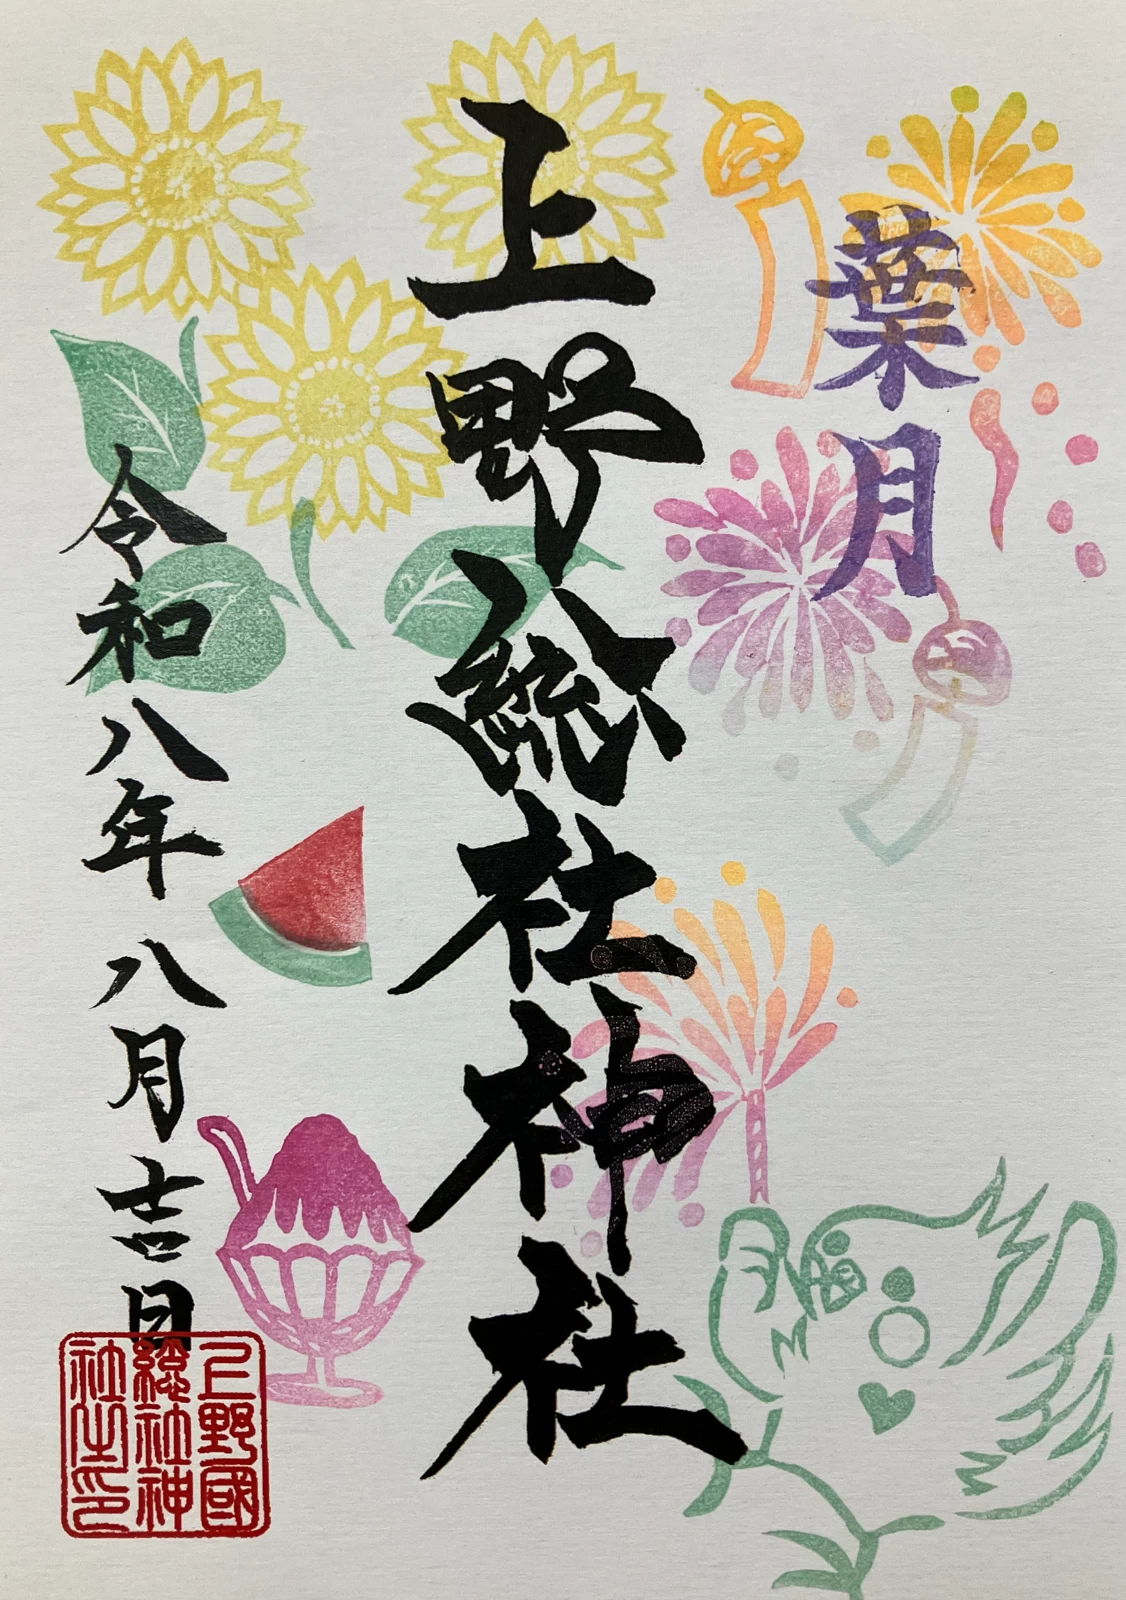 葉月
上野総社神社
令和八年八月吉日
上野國
総社神
社之印